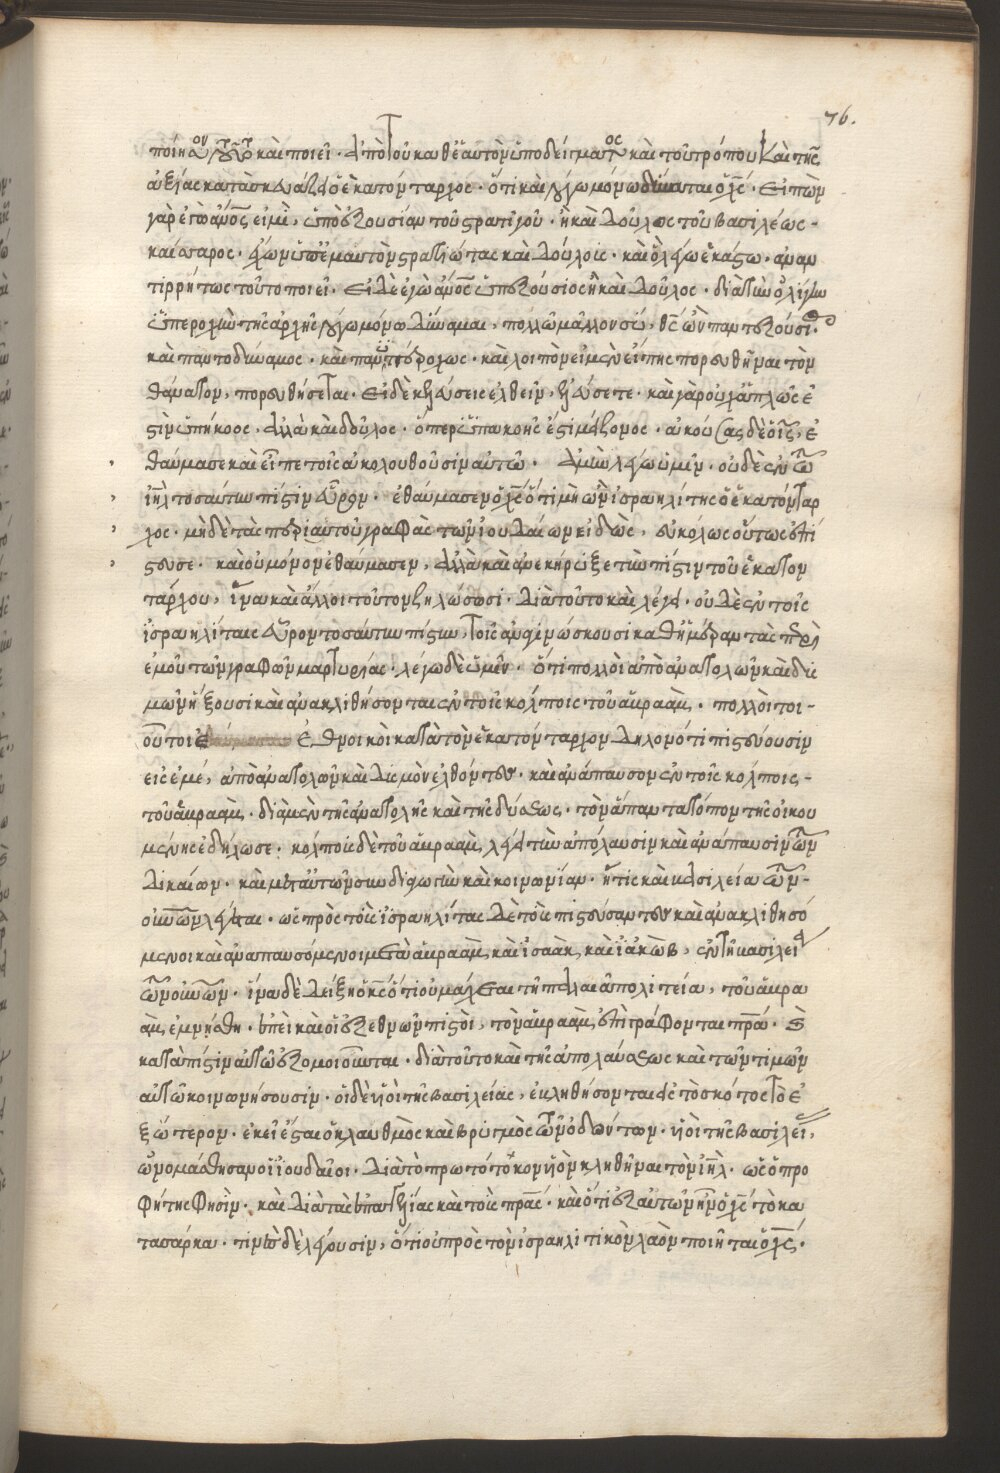 76.
ποίησον τοῦτο καὶ ποιεῖ · ἀπὸ τοῦ καθ' ἑαυτὸν ὑποδείγματος καὶ τοῦ τρόπου καὶ τῆς
ἀξίας κατασκευάζει ὁ ἑκατόνταρχος · ὅτι καὶ λόγω μόνω δύναται ὁ χς · εἰπὼν
γὰρ ἐγὼ ἄνος εἰμὶ, ὑπὸ ἐξουσίαν τοῦ στρατηγοῦ · ἢ καὶ δοῦλος τοῦ βασιλέως -
καίσαρος · ἔχων ὑπ' ἐμαυτὸν στρατιώτας καὶ δούλους · καὶ ὃ λέγω ἑκάστω · ἀναν
τιρρήτως τοῦτο ποιεῖ · εἰ δὲ ἐγὼ ἄνος ὑπεξούσιος ἢ καὶ δοῦλος · διὰ τὴν ὀλίγην
ὑπεροχὴν τῆς ἀρχῆς λόγω μόνω δύναμαι, πολλῶ μᾶλλον σύ, θς ὢν παντεξούσιος
καὶ παντοδύναμος · καὶ πανυπέροχος · καὶ λοιπὸν εἰ μὲν εἴπης πορευθῆναι τὸν
θάνατον, πορευθήσεται · εἰ δὲ κελεύσεις ἐλθεῖν, ἐλεύσεται · καὶ γὰρ οὐχ ἁπλῶς ἐ
στὶν ὑπήκοος · ἀλλὰ καὶ δοῦλος · ὅπερ ὑπακοῆς ἐστὶ μείζονος · ἀκούσας δὲ ὁ ις, ἐ
θαύμασε καὶ εἶπε τοῖς ἀκολουθοῦσιν αὐτῶ · ἀμὴν λέγω ὑμῖν · οὐδὲ ἐν τῶ
ιηλ τοσαύτην πίστιν εὗρον · ἐθαύμασεν ὁ χς ὅτι μὴ ὢν ἰσραηλίτης ὁ ἑκατόνταρ
χος · μὴ δὲ τὰς περὶ αὐτοῦ γραφὰς τῶν ἰουδαίων εἰδὼς, εὐκόλως οὕτως ἐπί
στευσε · καὶ οὐ μόνον ἐθαύμασεν, ἀλλὰ καὶ ἀνεκήρυξε τὴν πίστιν τοῦ ἑκατον
τάρχου, ἵνα καὶ ἄλλοι τοῦτον ζηλώσωσι · διὰ τοῦτο καὶ λέγει · οὐδὲ ἐν τοῖς
ἰσραηλίταις εὗρον τοσαύτην πίστιν, τοῖς ἀναγινώσκουσι καθημέραν τὰς περὶ
ἐμοῦ τῶν γραφῶν μαρτυρίας · λέγω δὲ ὑμῖν · ὅτι πολλοὶ ἀπὸ ἀνατολῶν καὶ δυ
μῶν ἥξουσι καὶ ἀνακλιθήσονται ἐν τοῖς κόλποις τοῦ ἀβραάμ · πολλοὶ τοι -
οῦτοι ἐθνικοὶ κατὰ τὸν ἑκατόνταρχον δηλονότι πιστεύουσιν
εἰς ἐμέ, ἀπὸ ἀνατολῶν καὶ δυσμῶν ἐλθόντες · καὶ ἀνάπαυσον ἐν τοῖς κόλποις -
τοῦ ἀβραάμ · διὰ μὲν τῆς ἀνατολῆς καὶ τῆς δύσεως · τὸν ἅπαντα τόπον τῆς οἰκου
μένης ἐδήλωσε · κόλπους δὲ τοῦ ἀβραάμ λέγει τὴν ἀπόλαυσιν καὶ ἀνάπαυσιν τῶν
δικαίων · καὶ μετ' αὐτῶν συνδιαγωγὴν καὶ κοινωνίαν · ἥτις καὶ βασιλεία τῶν -
οὐνῶν λέγεται · ὡς πρὸς τοὺς ἰσραηλίτας δὲ τοὺς πιστεύσαντας καὶ ἀνακλιθησο
μένοι καὶ ἀναπαυσόμενοι μετὰ ἀβραάμ, καὶ ἰσαὰκ, καὶ ἰακὼβ, ἐν τῆ βασιλεία
τῶν οὐνῶν · ἵνα δὲ δείξη ὁ κς ὅτι οὐ μάχεται τῆ παλαιᾶ πολιτεία, τοῦ ἀβρα
ὰμ ἐμνήσθη · ἐπεὶ καὶ οἱ ἐξ ἐθνῶν πιστοὶ, τὸν ἀβραάμ ἐπιγράφονται πρα · ὡς
κατὰ πίστιν αὐτῶ ἐξομοιοῦνται · διὰ τοῦτο καὶ τῆς ἀπολαύσεως καὶ τῶν τιμῶν
αὐτῶ κοινωνήσουσιν · οἱ δὲ υἱοὶ τῆς βασιλείας, ἐκβληθήσονται εἰς τὸ σκότος τὸ ἐ
ξώτερον · ἐκεῖ ἔσται ὁ κλαυθμὸς καὶ βρυγμὸς τῶν ὀδόντων · υἱοὶ τῆς βασιλείας,
ὠνομάσθησαν οἱ ἰουδαῖοι · διὰ τὸ πρωτότοκον υἱὸν κληθῆναι τὸν ιηλ · ὡς ὁ προ
φήτης φησὶν · καὶ διὰ τὰς ἐπαγγελίας καὶ τοὺς πρας · καὶ ὅτι ἐξ αὐτῶν ἦν ὁ χς τὸ κα
τασάρκα · τινὲς δὲ λέγουσιν, ὅτι οὐ πρὸς τὸν ἰσραηλιτικὸν λαὸν ποιῆται ὁ χς ·